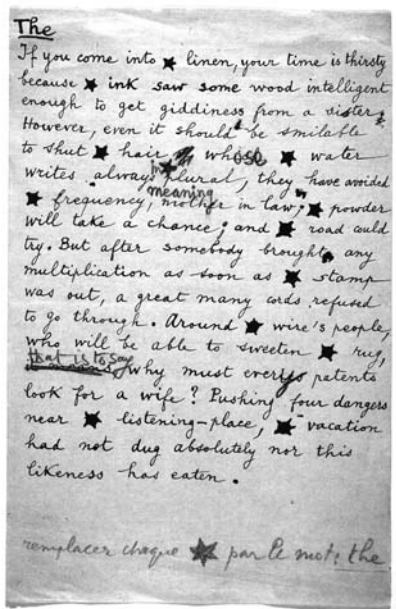 The
If you come into ★ linen, your time is thirsty
because ★ ink saw some wood intelligent
enough to get giddiness from a sister.
However, even it should be smilable
to shut ★ hair whose ★ water
writes always in plural, they have avoided
★ frequency, meaning mother in law; ★ powder
will take a chance; and ★ road could
try. But after somebody brought any
multiplication as soon as ★ stamp
was out, a great many cords refused
to go through. Around ★ wire's people,
who will be able to sweeten ★ rug,
that is to say, why must every patents
look for a wife? Pushing four dangers
near ★ listening-place, ★ vacation
had not dug absolutely nor this
likeness has eaten.
remplacer chaque ★ par le mot: the